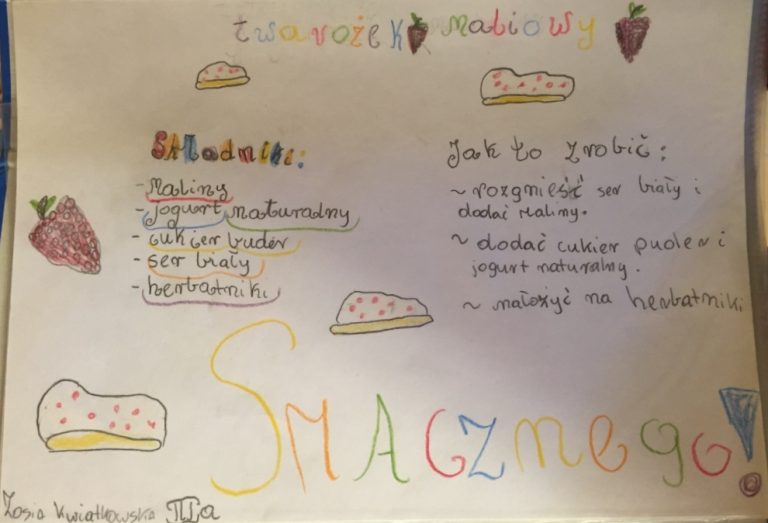 twarożek maliowy
Składniki:
- Maliny
- jogurt naturadny
- cukier buder
- ser biały
- herbatniki
Jak to zrobić:
~ rozgnieść ser biały i
dodać maliny.
~ dodać cukier puder i
jogurt naturalny.
~ nałożyć na herbatniki
SMACZNego!
Zosia Kwiatkowska IIa